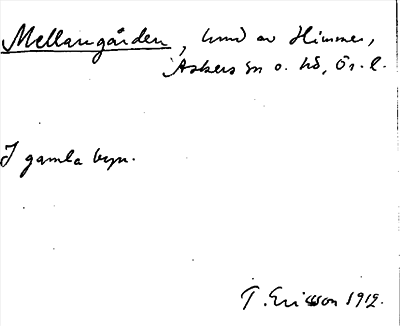 Mellangården, hmd av Himmer,
Askers sn o. hd, Ör. l.
I gamla byn.
T. Ericsson 1912.